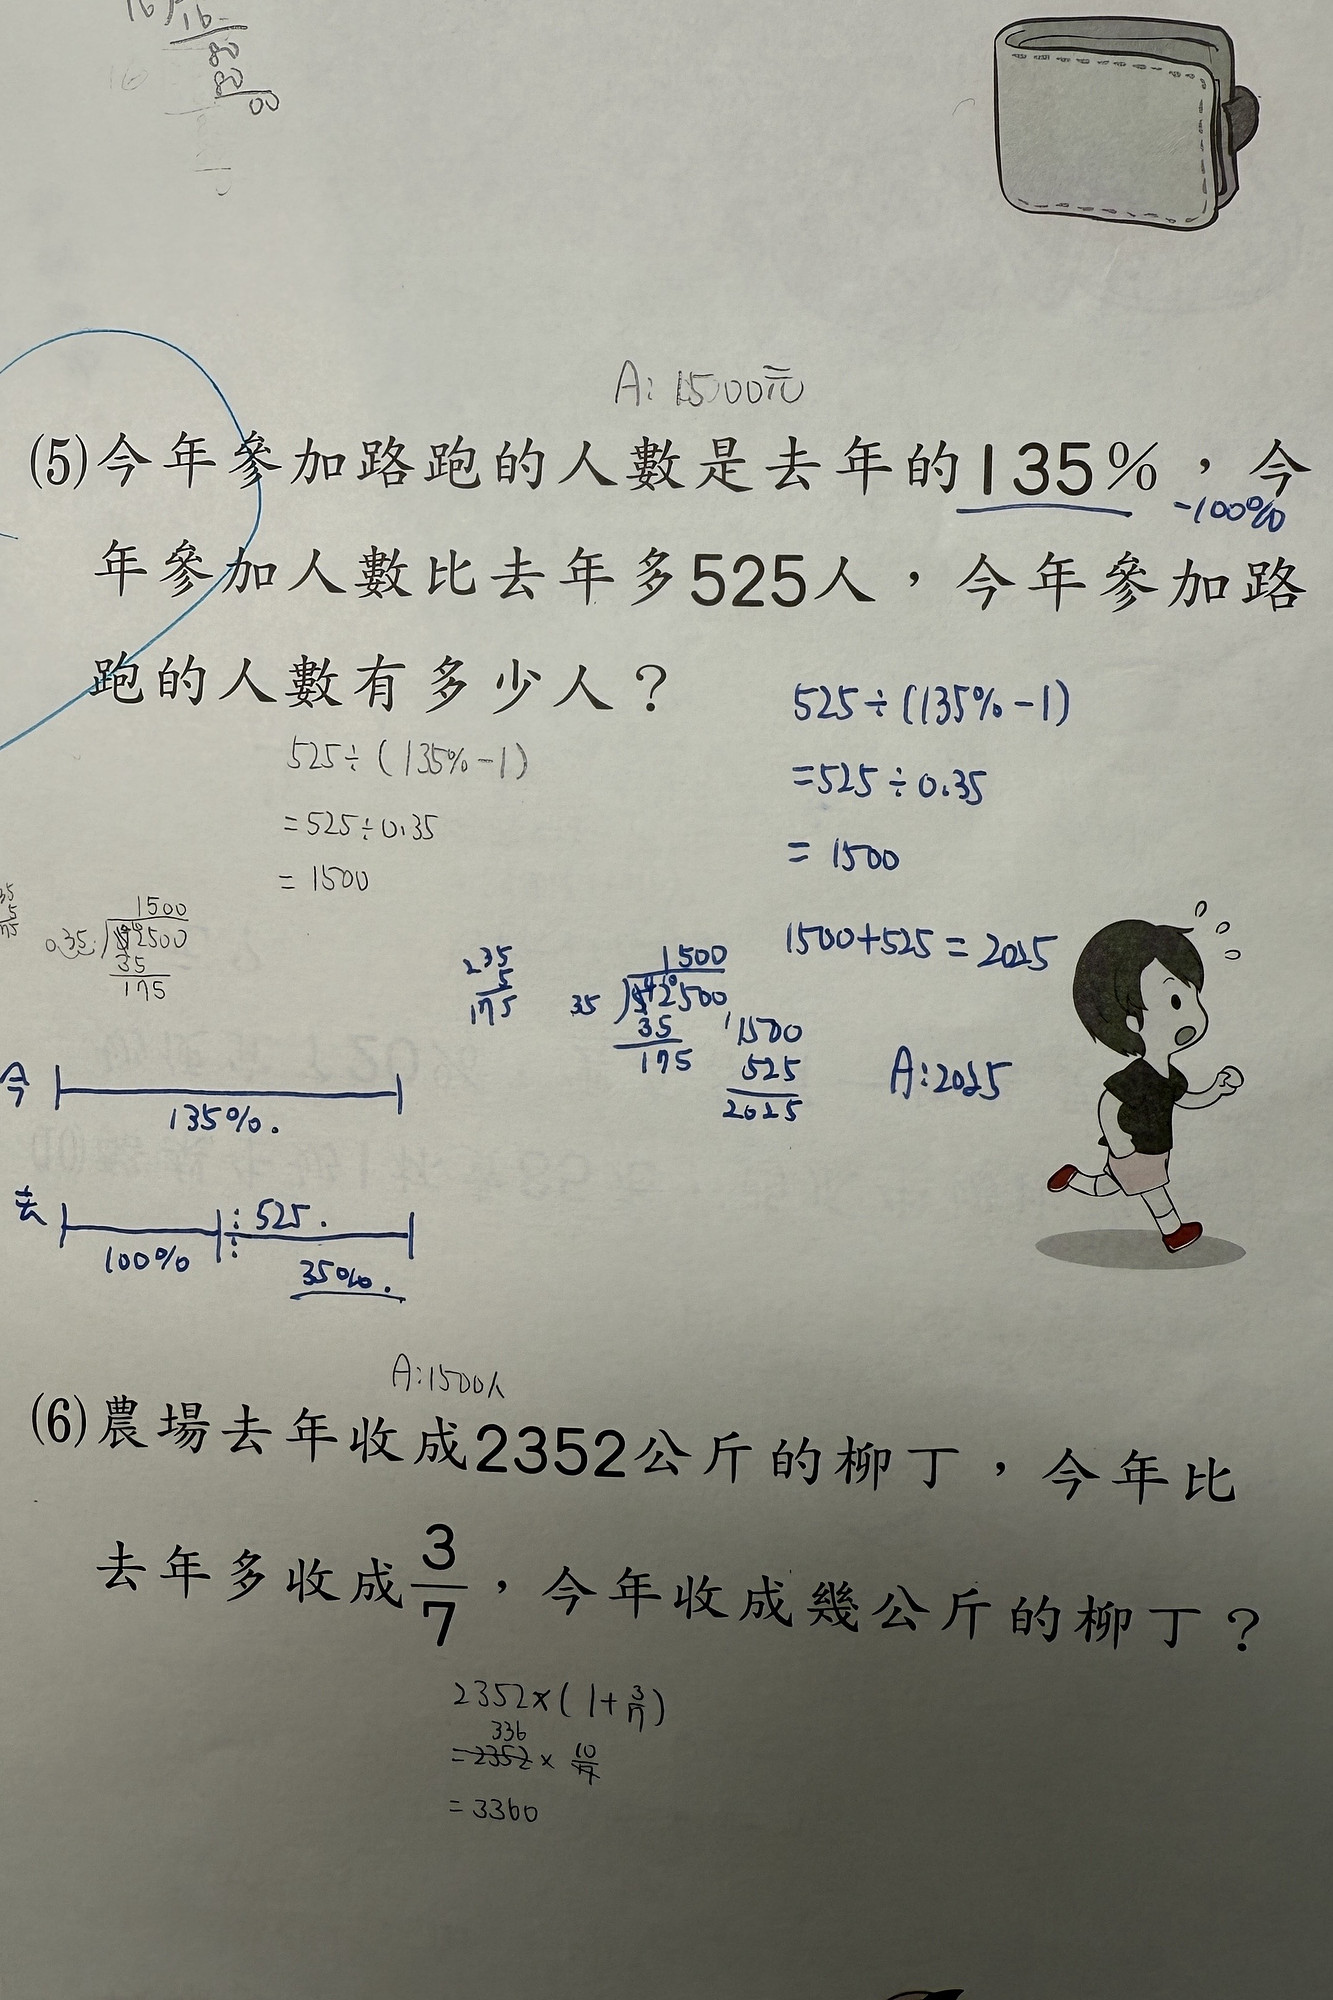 16
80
80
00
A: 1500元
(5)今年參加路跑的人數是去年的135%，今
-100%
年參加人數比去年多525人，今年參加路
跑的人數有多少人？
525÷(135%-1)
=525÷0.35
=1500
525÷(135%-1)
=525÷0.35
= 1500
1500+525=2025
A:2025
1500
0.35 52500
35
175
35
5
175
1500
35 52500
35
175
1500
525
2025
今
135%.
去
525.
100%
35%.
A:1500人
(6)農場去年收成2352公斤的柳丁，今年比
去年多收成3/7，今年收成幾公斤的柳丁？
2352×(1+3/7)
336
=2352×10/7
=3360